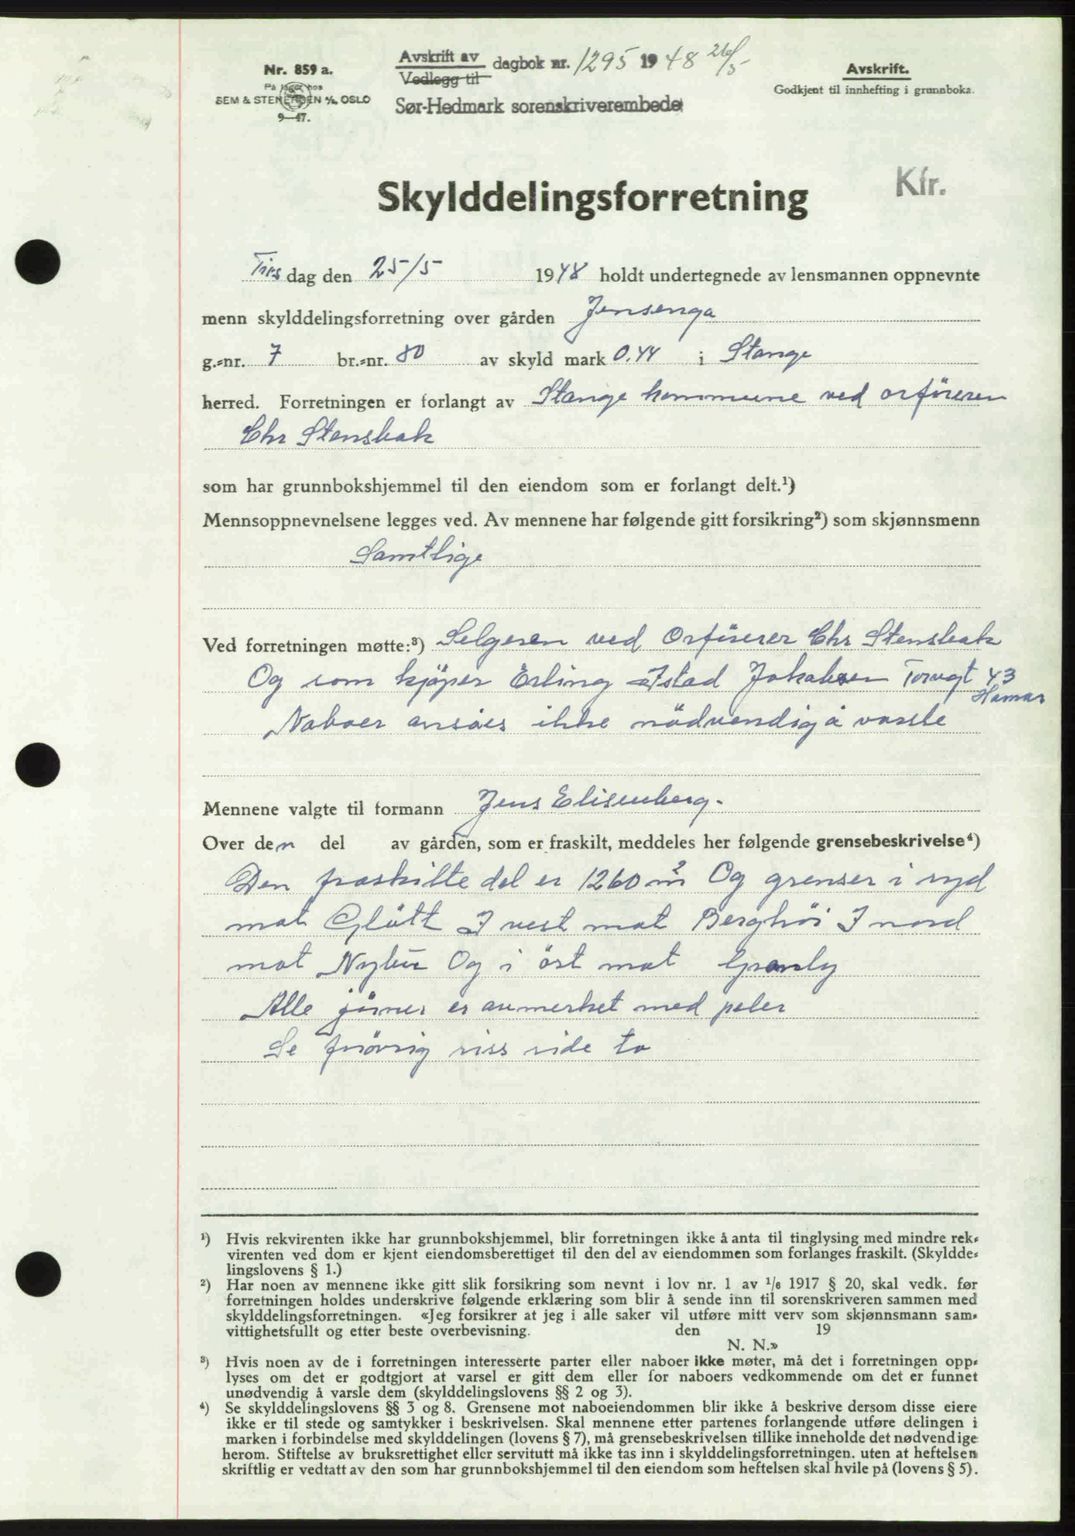 Nr. 859 a.
På lager hos
SEM & STENERSEN A/S, OSLO
9—47.
Avskrift av dagbok nr. 1295 1948 26/5
Vedlegg til
Sør-Hedmark sorenskriverembede
Avskrift.
Godkjent til innhefting i grunnboka.
Kfr.
Skylddelingsforretning
Tirs dag den 25/5 1948 holdt undertegnede av lensmannen oppnevnte
menn skylddelingsforretning over gården Jensenga
g.-nr. 7 br.-nr. 80 av skyld mark 0.44 i Stange
herred. Forretningen er forlangt av Stange kommune ved orføreren
Chr Stensbak
som har grunnbokshjemmel til den eiendom som er forlangt delt.¹)
Mennsoppnevnelsene legges ved. Av mennene har følgende gitt forsikring²) som skjønnsmenn
Samtlige
Ved forretningen møtte:³) Selgeren ved Orförerer Chr Stensbak
Og som kjöper Erling Istad Jakobsen Torvgt 43
Hamar
Naboer ansåes ikke nödvendig å varsle
Mennene valgte til formann Jens Elisenberg.
Over den del av gården, som er fraskilt, meddeles her følgende grensebeskrivelse⁴)
Den fraskilte del er 1260 m² Og grenser i syd
mot Gløtt I vest mot Berghöi I nord
mot Nybu Og i öst mot Granly
Alle jörner er anmerket med peler
Se frövrig riss side to
¹) Hvis rekvirenten ikke har grunnbokshjemmel, blir forretningen ikke å anta til tinglysing med mindre rek-
virenten ved dom er kjent eiendomsberettiget til den del av eiendommen som forlanges fraskilt. (Skyldde-
lingslovens § 1.)
²) Har noen av mennene ikke gitt slik forsikring som nevnt i lov nr. 1 av 1/6 1917 § 20, skal vedk. før
forretningen holdes underskrive følgende erklæring som blir å sende inn til sorenskriveren sammen med
skylddelingsforretningen. «Jeg forsikrer at jeg i alle saker vil utføre mitt verv som skjønnsmann sam-
vittighetsfullt og etter beste overbevisning. den 19
N. N.»
³) Hvis noen av de i forretningen interesserte parter eller naboer ikke møter, må det i forretningen opp-
lyses om det er godtgjort at varsel er gitt dem eller for naboers vedkommende om det er funnet
unødvendig å varsle dem (skylddelingslovens §§ 2 og 3).
⁴) Se skylddelingslovens §§ 3 og 8. Grensene mot naboeiendommen blir ikke å beskrive dersom disse eiere
ikke er til stede og samtykker i beskrivelsen. Skal mennene etter partenes forlangende utføre delingen i
marken i forbindelse med skylddelingen (lovens § 7), må grensebeskrivelsen tillike inneholde det nødvendige
herom. Stiftelse av bruksrettighet eller servitutt må ikke tas inn i skylddelingsforretningen. uten at heftelsen
skriftlig er vedtatt av den som har grunnbokshjemmel til den eiendom som heftelsen skal hvile på (lovens § 5).